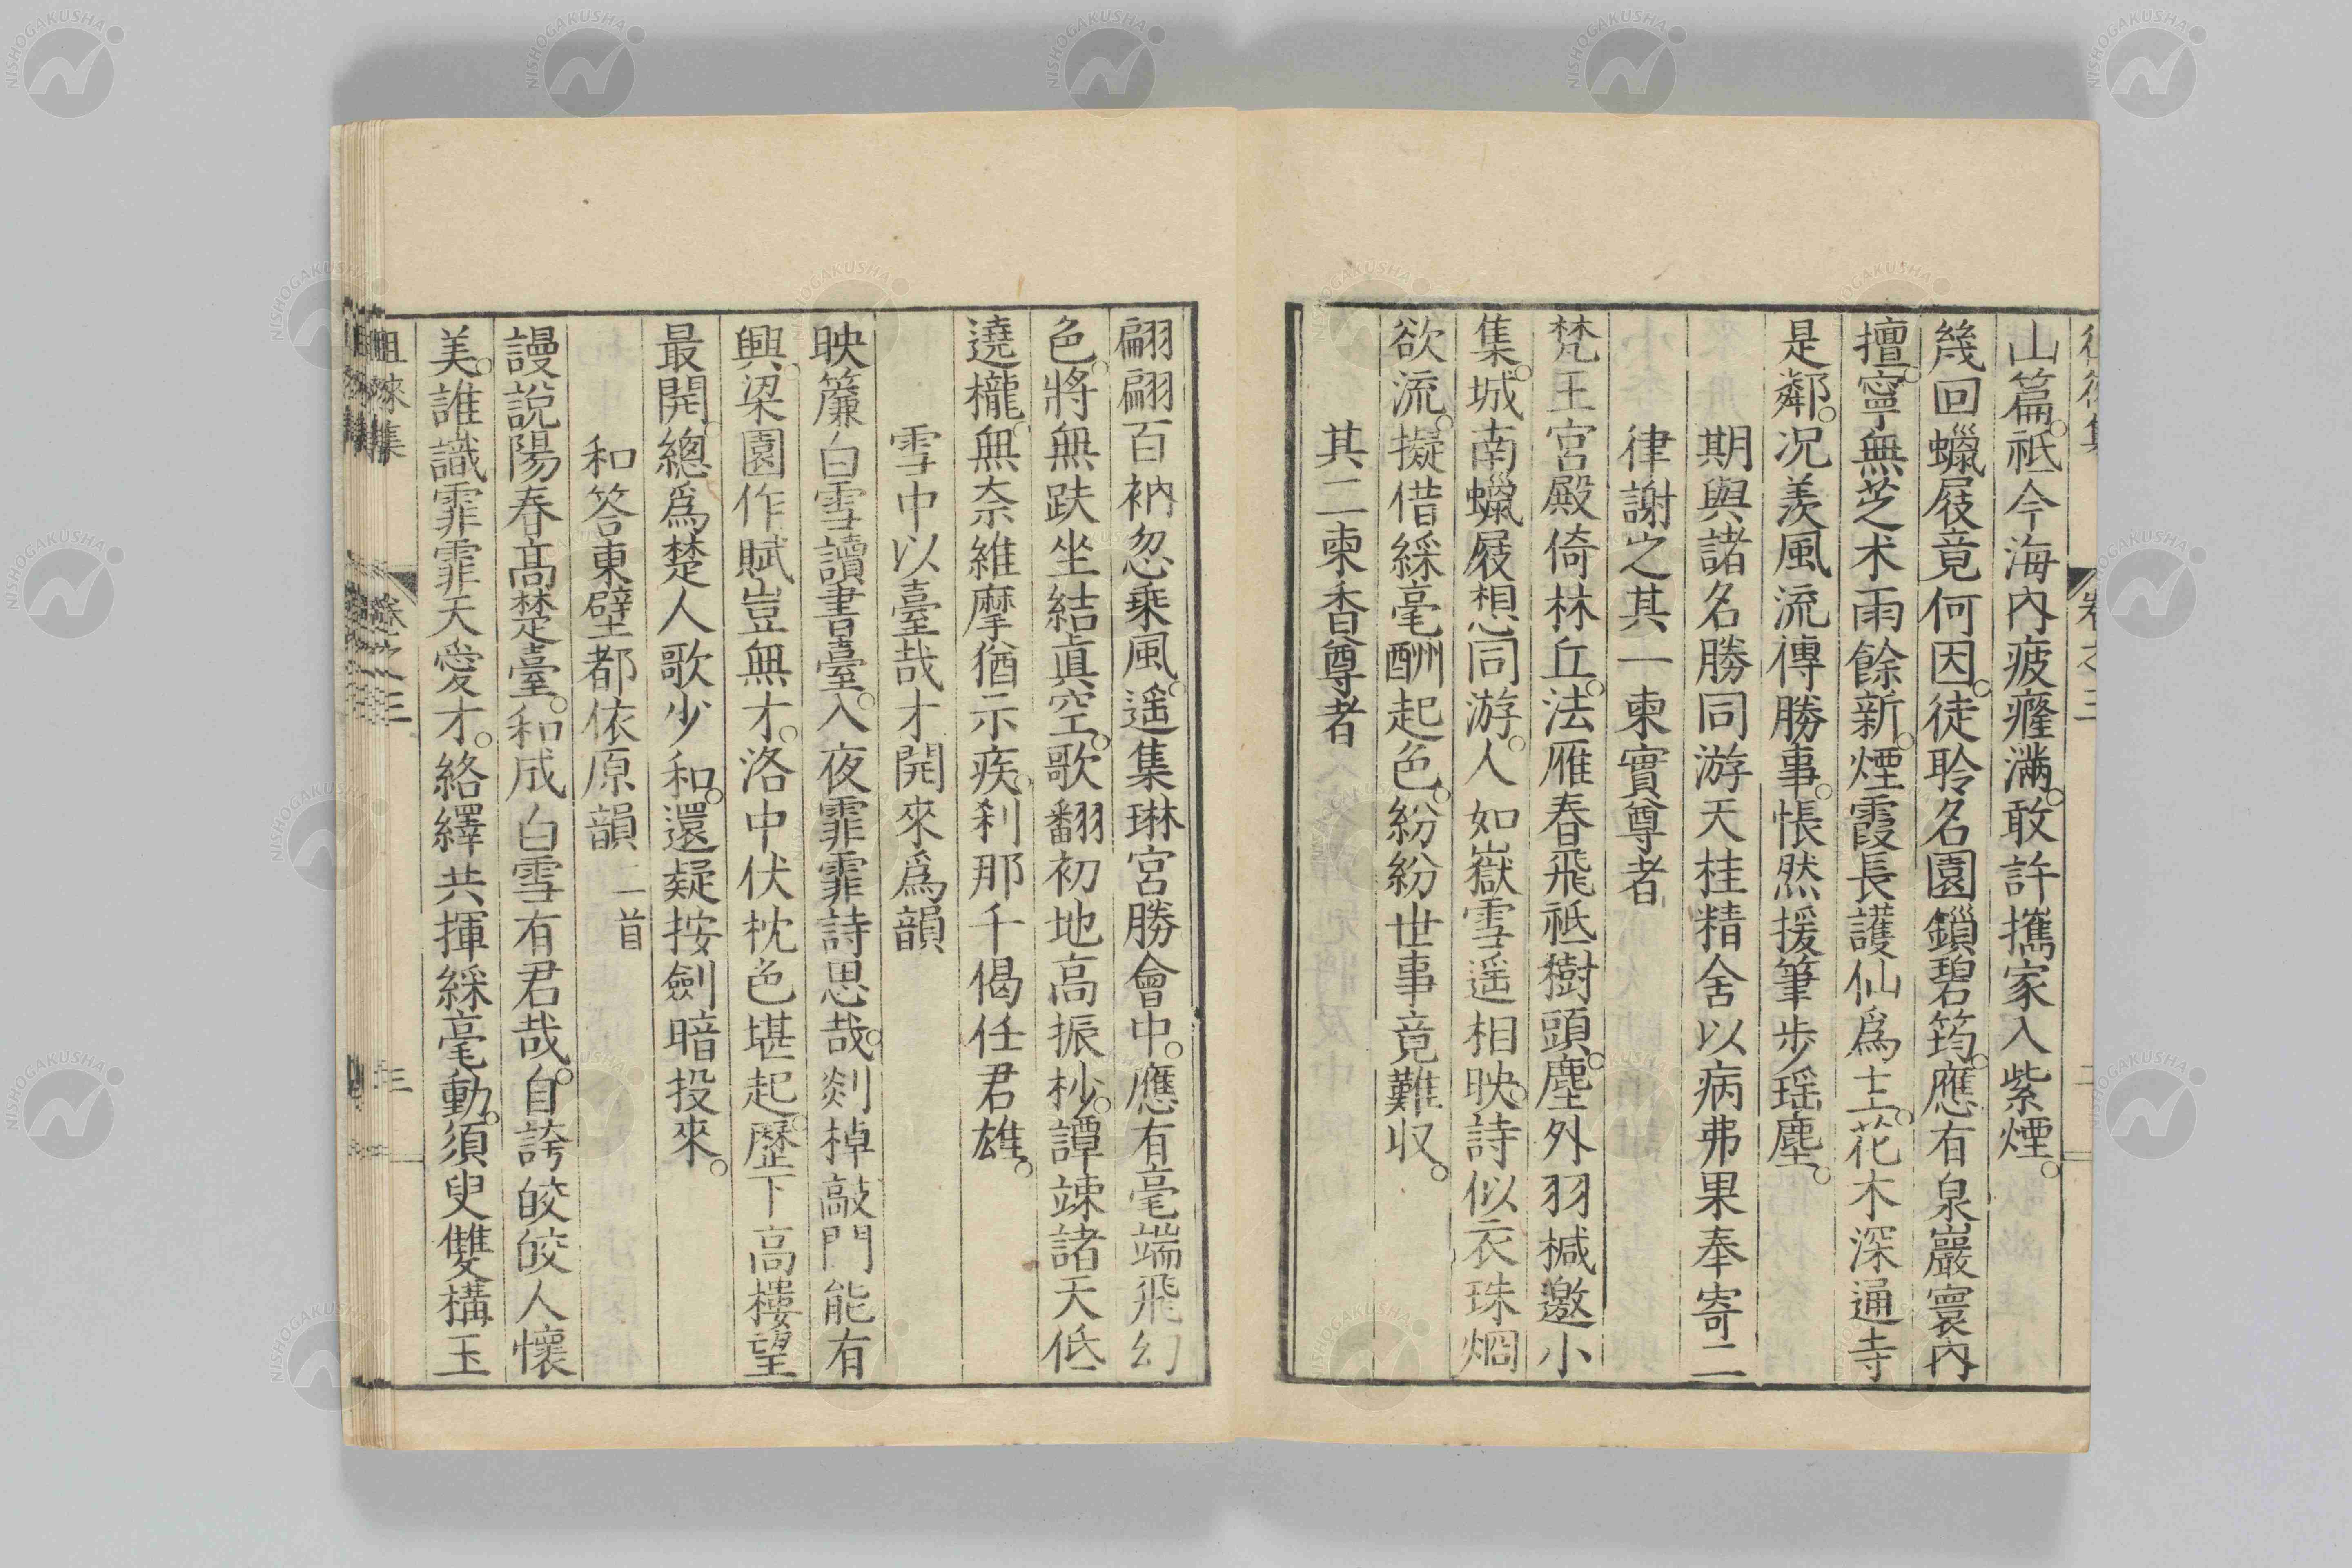 山篇。祗今海內疲癃滿。敢許攜家入紫煙。
幾回蠟屐竟何因。徒聆名園鎖碧筠。應有泉巖寰內
擅。寧無芝朮雨餘新。煙霞長護仙爲士。花木深通寺
是鄰。況羨風流傳勝事。悵然援筆步瑶塵。
期與諸名勝同游天桂精舍以病弗果奉寄二
律謝之其一東實尊者
梵王宮殿倚林丘。法雁春飛祗樹頭。塵外羽械邀小
集。城南蠟屐想同游。人如嶽雪遥相映。詩似衣珠烱
欲流。擬借綵毫酬起色。紛紛世事竟難収。
其二東香尊者
翩翩百衲忽乗風。遥集琳宮勝會中。應有毫端飛幻
色。將無趺坐結眞空。歌翻初地高振杪。譚竦諸天低
遶櫳。無奈維摩猶示疾。刹那千偈任君雄。
雪中以臺哉才開來爲韻
映簾白雪讀書臺。入夜霏霏詩思哉。剡棹敲門能有
興。梁園作賦豈無才。洛中伏枕色堪起。歷下高樓望
最開。總爲楚人歌少和。還疑按劍暗投來。
和答東壁都依原韻二首
謾說陽春高楚臺。和成白雪有君哉。自誇皎皎人懷
美。誰識霏霏天愛才。絡繹共揮綵毫動。須臾雙構玉
徂徠集 卷之三 三